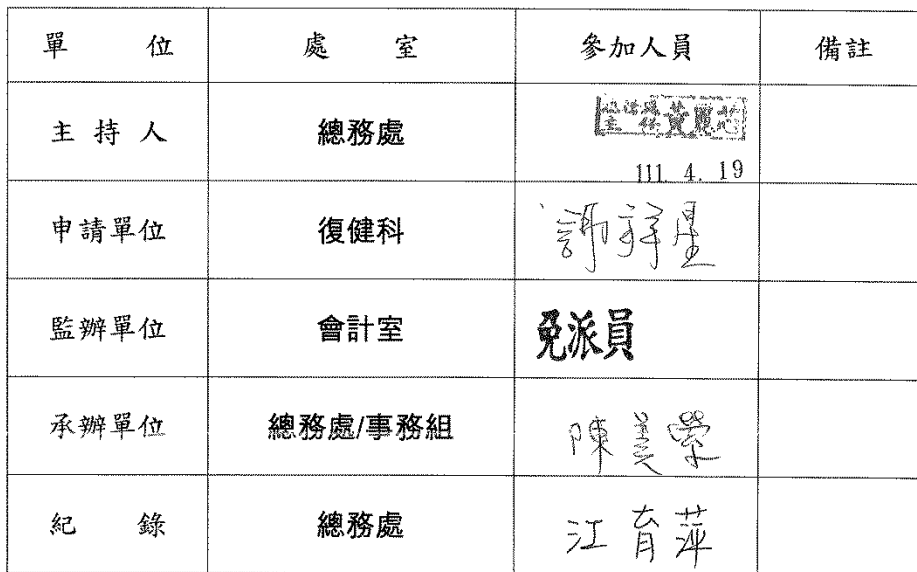 單 位 處 室 參加人員 備註
主 持 人 總務處 黃麗芯
111. 4. 19
申請單位 復健科 謝祥星
監辦單位 會計室 免派員
承辦單位 總務處/事務組 陳美縈
紀 錄 總務處 江育萍